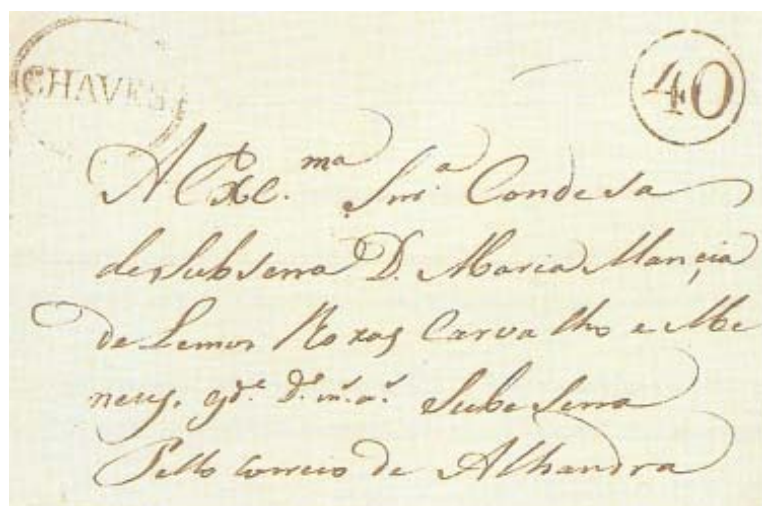 CHAVES
40
A Exc.ma Snr.a Condesa
de Subserra D. Maria Mancia
de Lemos Roxas Carvalho e Me
nezes. gde. Subeserra
Pello correio de Alhandra